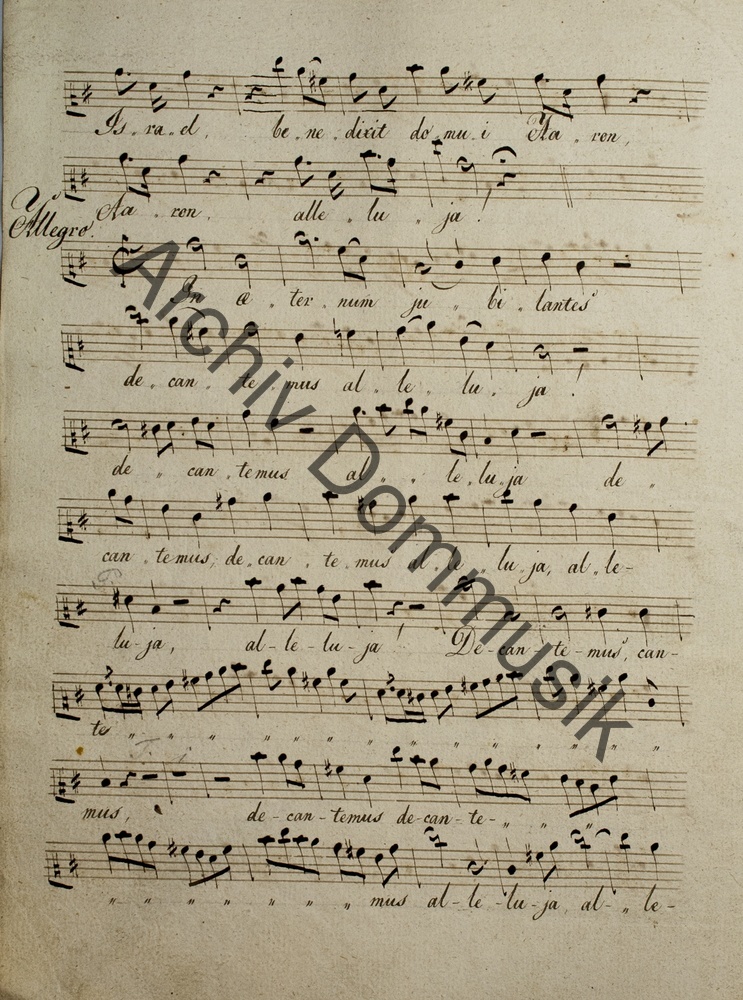 Is. ra. el, be. ne. dixit do. mu. i Aa. ron,
Aa. ron, alle. lu. ja!
Allegro.
In æ. ter. num ju. bi. lantes
de. can. te. mus al. le. lu. ja!
de. can. temus al. le. lu. ja de.
can. temus, de. can. te. mus al. le. lu. ja, al. le-
lu-ja, al-le-lu-ja! De-can-te-mus, can-
te
mus, de-can-temus de-can-te-
mus al-le-lu-ja, al-le-
Archiv Dommusik